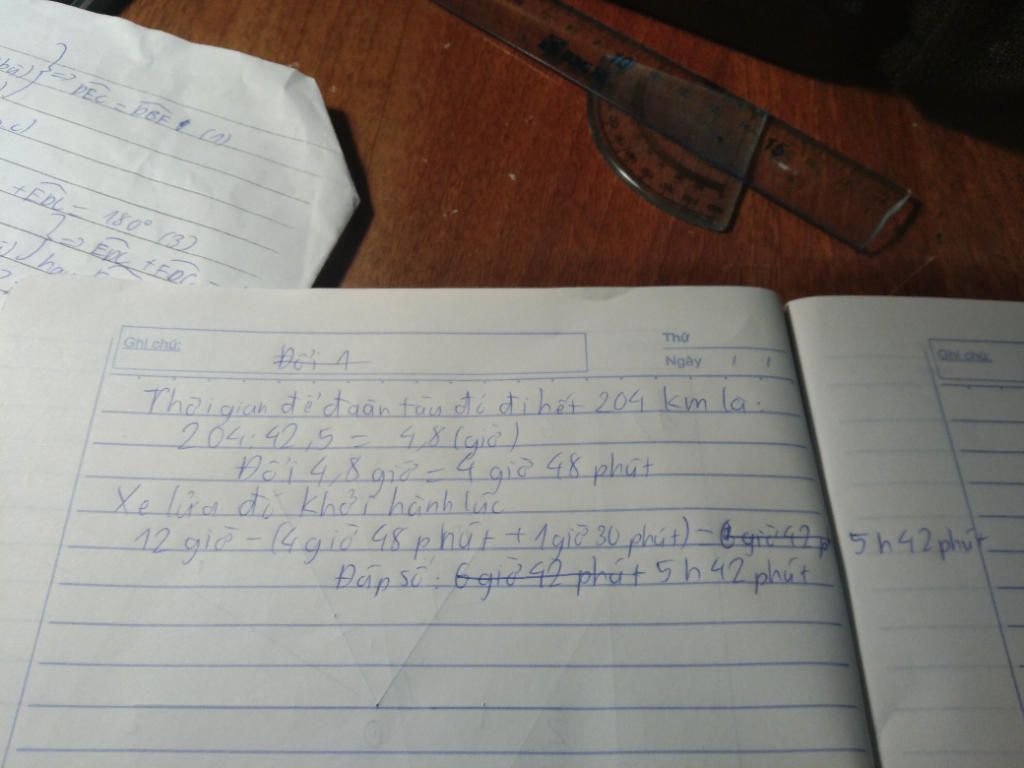 ⇒ DEC = DBF (1)
+ EDC = 180° (3)
⇒ EDC + EDC
Ghi chú:
Đổi 1
Thứ
Ngày / /
Ghi chú:
Thời gian để đoàn tàu đó đi hết 204 km là:
204:42,5 = 4,8 (giờ)
Đổi 4,8 giờ = 4 giờ 48 phút
Xe lửa đó khởi hành lúc
12 giờ - (4 giờ 48 phút + 1 giờ 30 phút) = 6 giờ 42 p 5h42 phút
Đáp số: 6 giờ 42 phút 5h42 phút
10
15